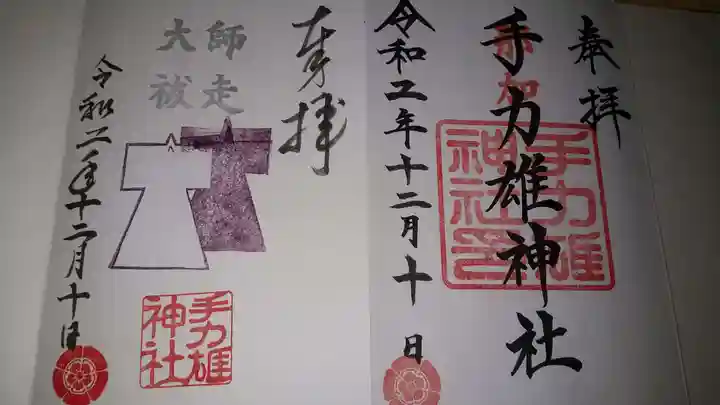 奉拝
手力雄神社
手力雄
神社
令和二年十二月十日
奉拝
師走
大祓
令和二年十二月十日
手力雄
神社